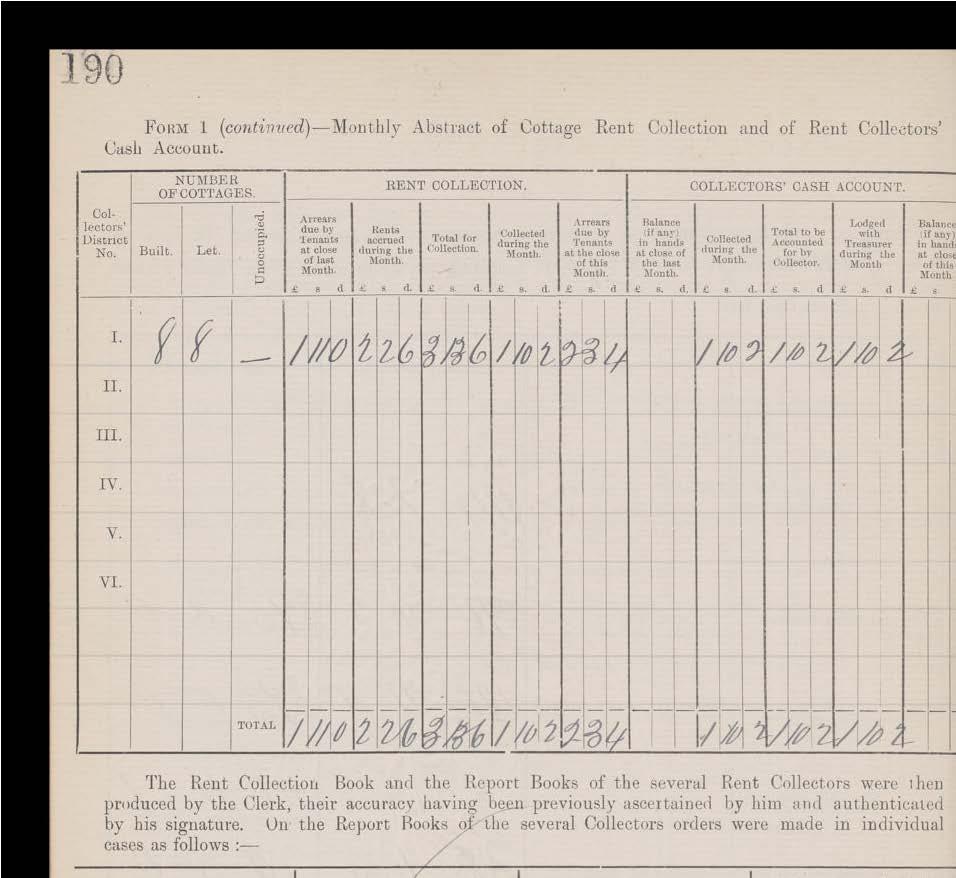 190
FORM 1 (continued)—Monthly Abstract of Cottage Rent Collection and of Rent Collectors'
Cash Account.
Col-
lectors'
District
No.
NUMBER
OF COTTAGES.
Built.
Let.
Unoccupied.
RENT COLLECTION.
Arrears
due by
Tenants
at close
of last
Month.
£ s d
Rents
accrued
during the
Month.
£ s. d.
Total for
Collection.
£ s. d.
Collected
during the
Month.
£ s. d.
Arrears
due by
Tenants
at the close
of this
Month.
£ s. d.
COLLECTORS' CASH ACCOUNT.
Balance
(if any)
in hands
at close of
the last
Month.
£ s. d.
Collected
during the
Month.
£ s. d.
Total to be
Accounted
for by
Collector.
£ s. d
Lodged
with
Treasurer
during the
Month
£ s. d
Balance
(if any)
in hands
at close
of this
Month
£ s.
I. 8 8 — 1 11 0 2 2 6 3 13 6 1 10 2 2 3 4 1 10 2 1 10 2 1 10 2
II.
III.
IV.
V.
VI.
TOTAL 1 11 0 2 2 6 3 13 6 1 10 2 2 3 4 1 10 2 1 10 2 1 10 2
The Rent Collection Book and the Report Books of the several Rent Collectors were then
produced by the Clerk, their accuracy having been previously ascertained by him and authenticated
by his signature. On the Report Books of the several Collectors orders were made in individual
cases as follows :—